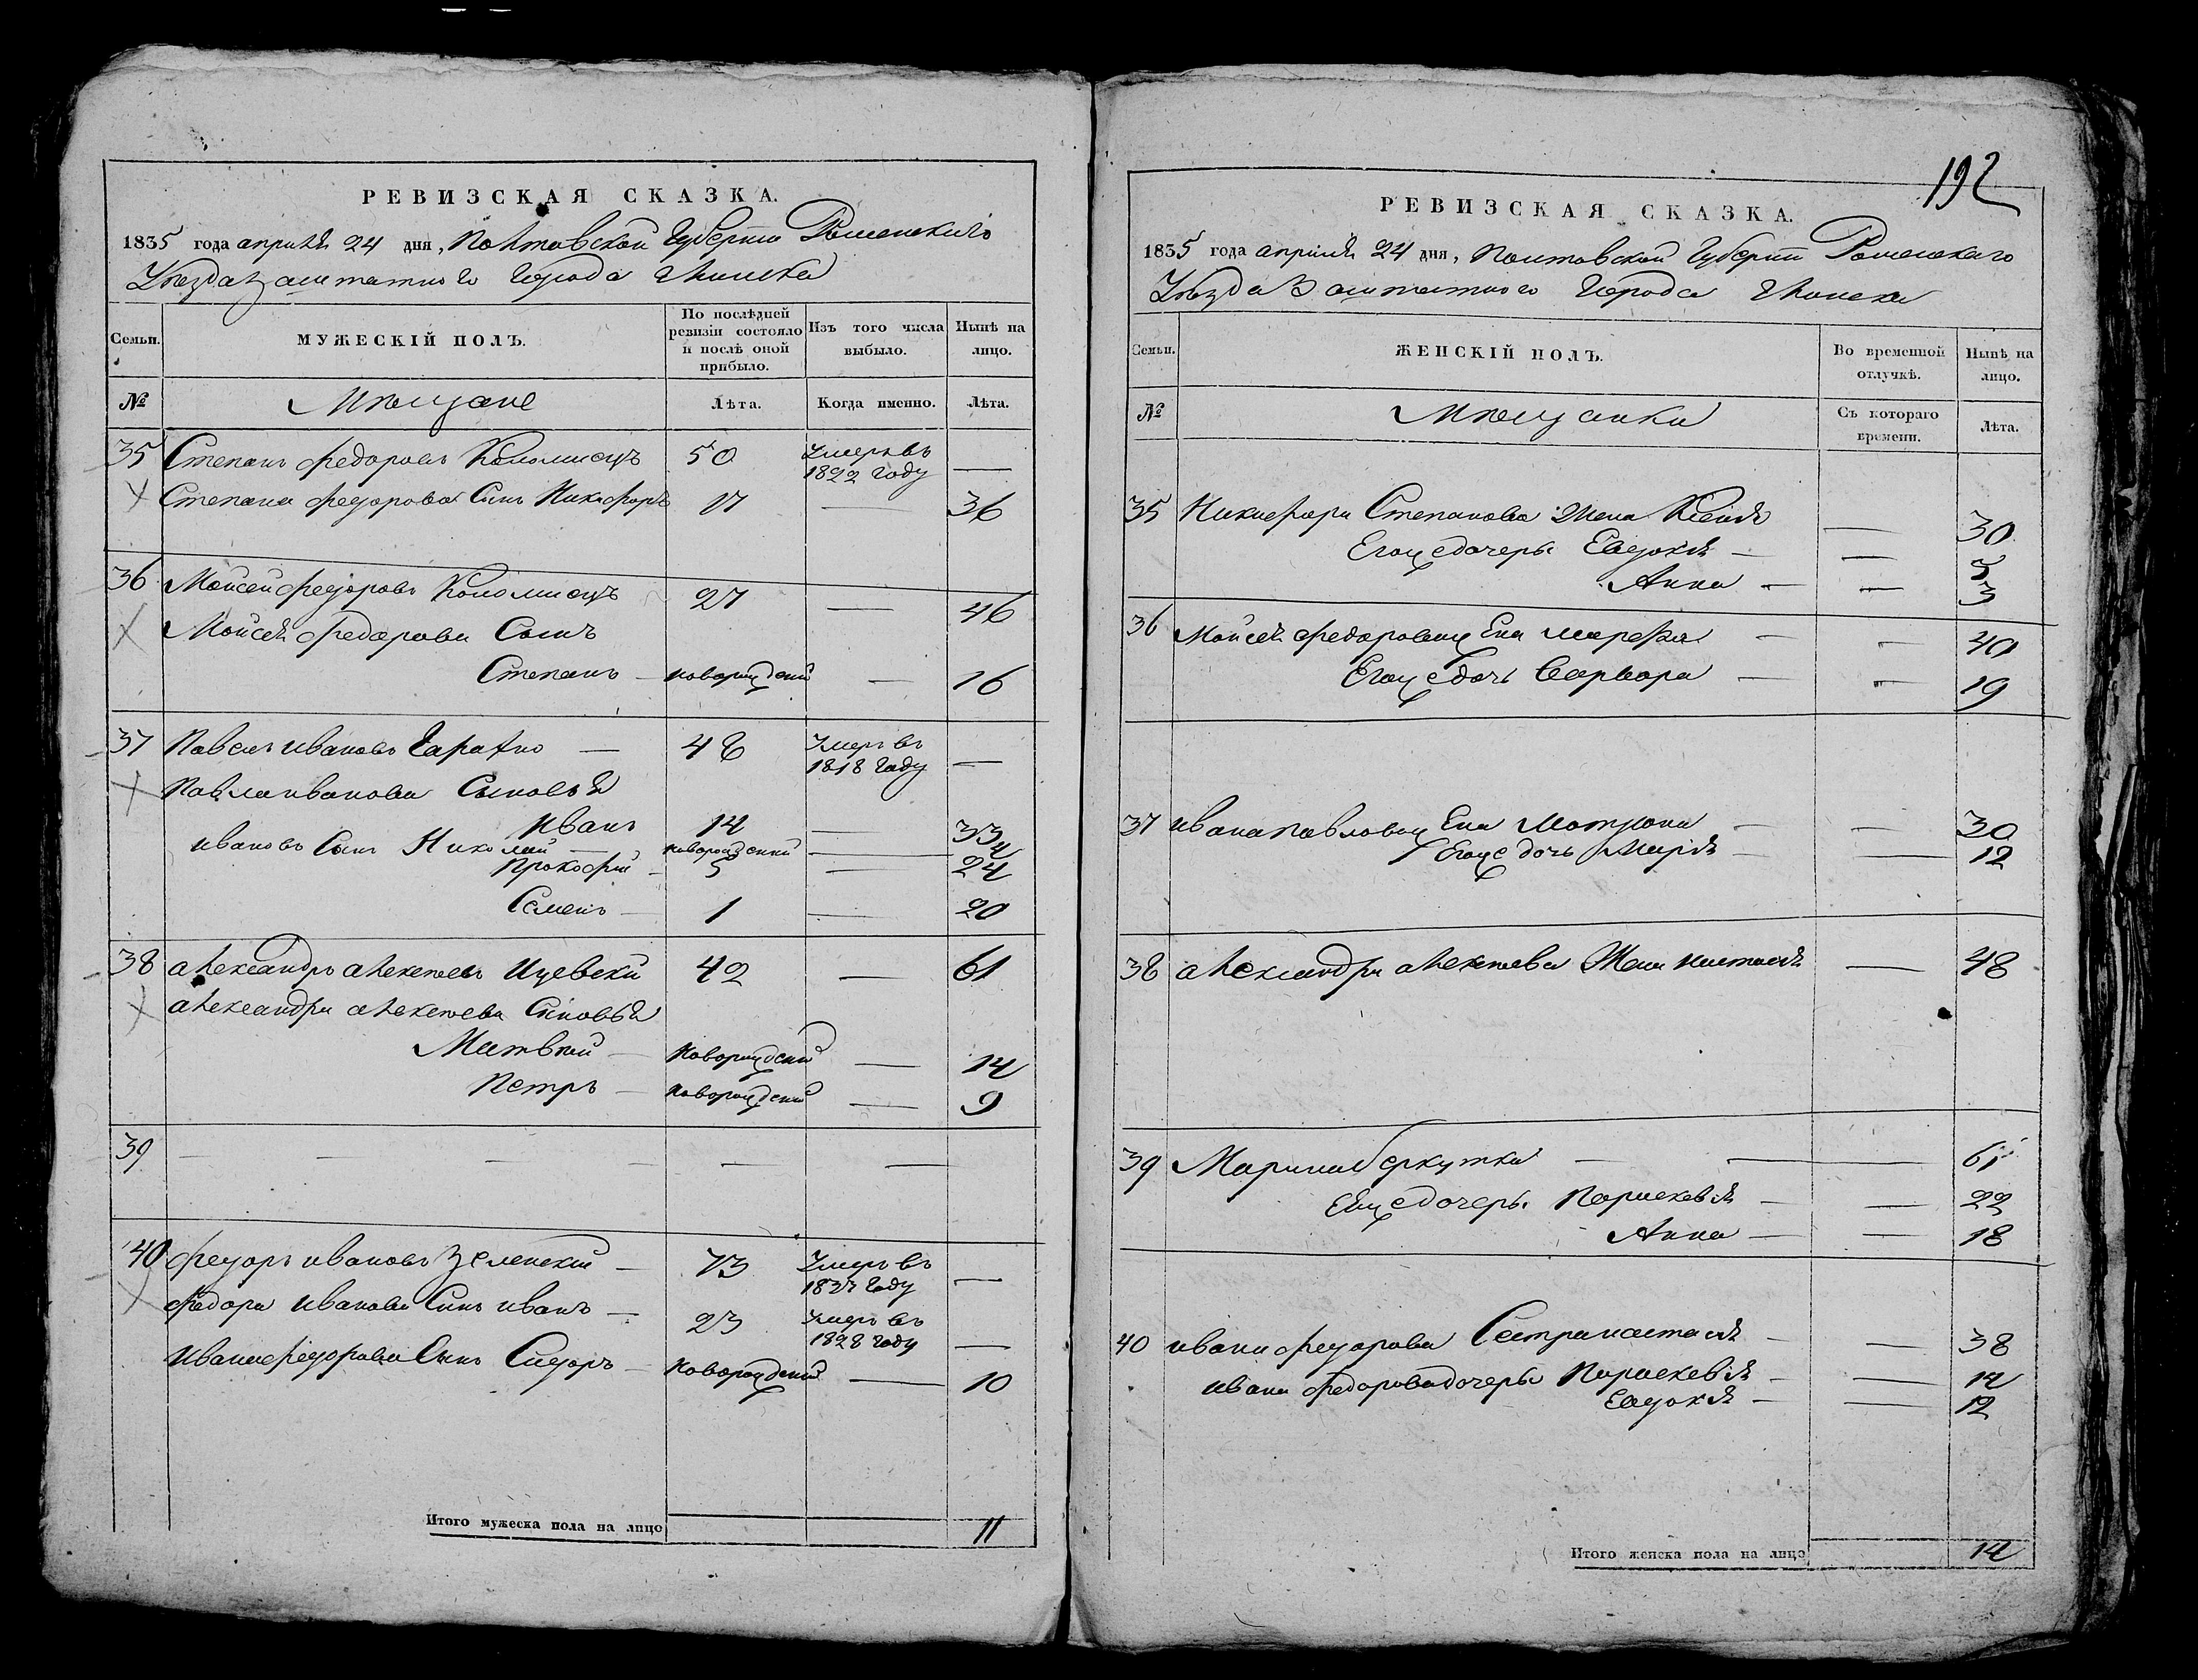 РЕВИЗСКАЯ СКАЗКА.
1835 года априля 24 дня, Полтавской Губернии Роменскаго
Уезда Заштатного Города Глинска
Семьи.
МУЖЕСКІЙ ПОЛЪ.
По послѣдней ревизіи состояло и послѣ оной прибыло.
Изъ того числа выбыло.
Нынѣ на лицо.
№
Мещане
Лѣта.
Когда именно.
Лѣта.
35 Степанъ федоровъ Коломиецъ 50 Умеръ въ 1822 году —
Степана федорова Синъ Никифоръ 17 — 36
36 Мойсей федоровъ Коломиецъ 27 — 46
Мойсея федорова Сынъ
Степанъ — новорожденій — 16
37 Павелъ ивановъ — 48 Умеръ въ 1818 Году —
Павла иванова Сыновья
Иванъ 14 — 33
ивановъ Сынъ Николай — новорожденій —
Прокофій — 5 — 24
Семенъ — 1 — 20
38 александръ алексеевъ 42 — 61
александра алексеева Сыновья
Матвей — новорожденій — 14
Петръ — новорожденій — 9
39 — — — — — —
40 федоръ ивановъ Зеленский — 73 Умеръ въ Году —
федора иванова Синъ иванъ — 23 Умеръ въ 1828 году —
Ивана федорова Сынъ Сидоръ — новорожденій — 10
Итого мужеска пола на лицо 11
192
РЕВИЗСКАЯ СКАЗКА.
1835 года априля 24 дня, Полтавской Губерніи Роменскаго
Уезда Заштатного Города Глинска
Семьи.
ЖЕНСКІЙ ПОЛЪ.
Во временной отлучкѣ.
Нынѣ на лицо.
№
Мещанки
Съ котораго времени.
Лѣта.
35 Никифора Степанова Жена Ксенія — 30
Егожедочери Евдокія — — 5
Анна — — 3
36 Мойсея федорова жена марефа — — 40
Егожедочь Варвара — — 19
37 ивана павлова жена Мотрона — — 30
Егожедочь Марія — — 12
38 александра алексеева Жена настасія — 48
39 Марина беркутка — — — 61
Еяжедочери Параскевія — — 22
Анна — — 18
40 ивана федорова Сестра настасія — — 38
ивана федорова дочери Параскевія — — 14
Евдокія — — 12
Итого женска пола на лицо 14